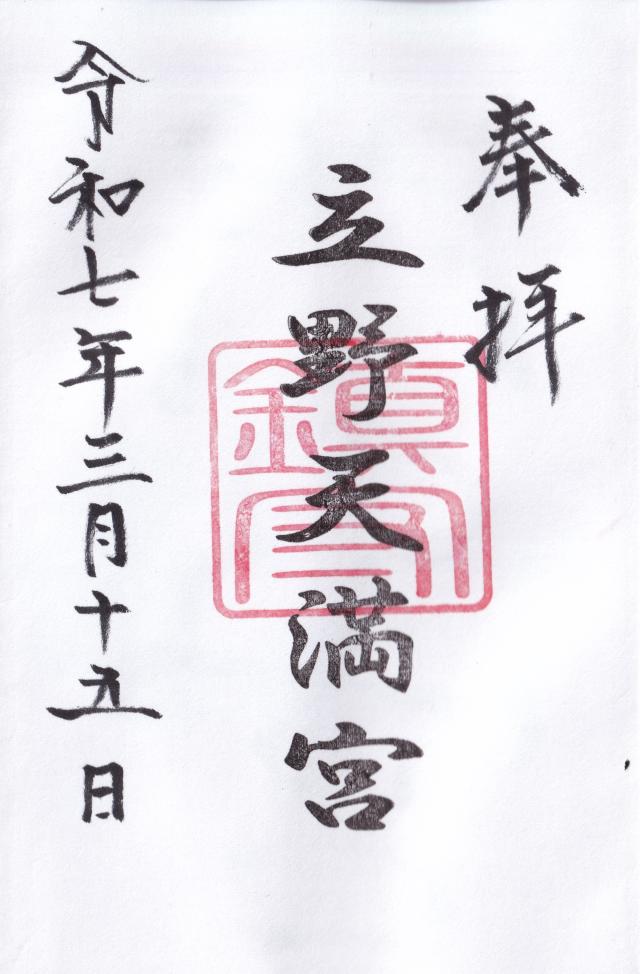 奉拝
立野天満宮
令和七年三月十五日